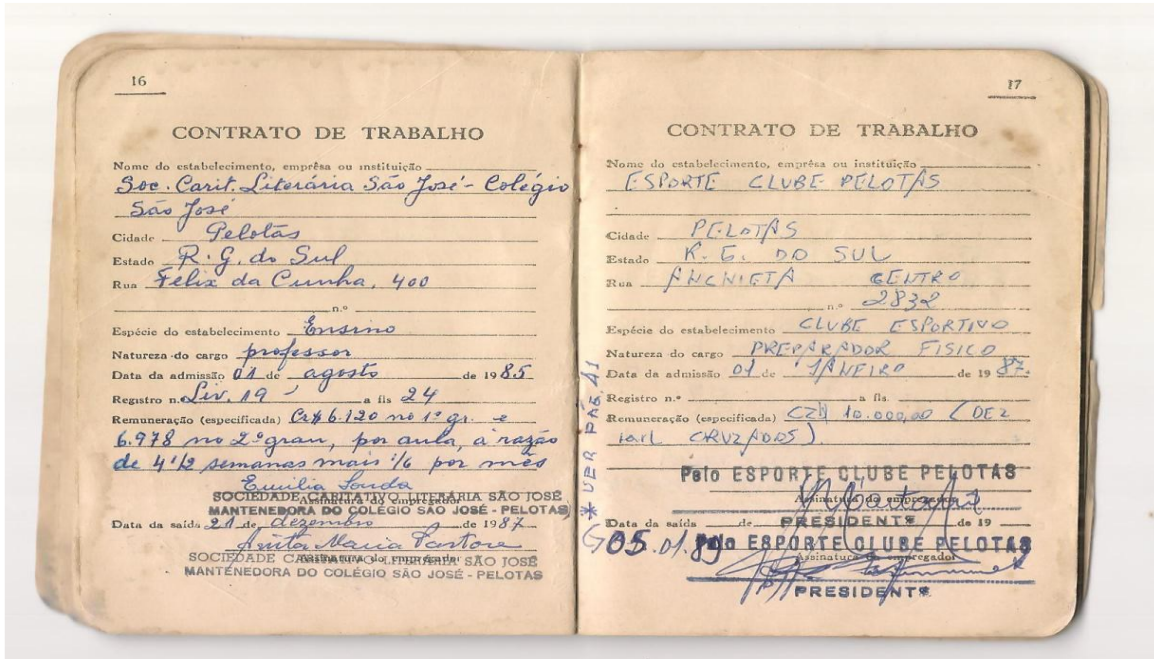 16
CONTRATO DE TRABALHO
Nome do estabelecimento, emprêsa ou instituição
Soc. Carit. Literária São José - Colégio
São José
Cidade Pelotas
Estado R. G. do Sul
Rua Felix da Cunha, 400
n.º
Espécie do estabelecimento Ensino
Natureza do cargo professor
Data da admissão 01 de agosto de 1985
Registro n.º Liv. 19 a fls 24
Remuneração (especificada) Cr$ 6.120 no 1º gr. e
6.978 no 2º grau, por aula, à razão
de 4 1/2 semanas mais 1/6 por mês
SOCIEDADE CARITATIVO LITERÁRIA SÃO JOSÉ
Assinatura do empregador
MANTENEDORA DO COLÉGIO SÃO JOSÉ - PELOTAS
Data da saída 21 de dezembro de 1987
Anita Maria Pastore
SOCIEDADE CARITATIVO LITERÁRIA SÃO JOSÉ
Assinatura do empregador
MANTENEDORA DO COLÉGIO SÃO JOSÉ - PELOTAS
17
CONTRATO DE TRABALHO
Nome do estabelecimento, emprêsa ou instituição
ESPORTE CLUBE PELOTAS
Cidade PELOTAS
Estado R. G. DO SUL
Rua ANCHIETA CENTRO
n.º 2832
Espécie do estabelecimento CLUBE ESPORTIVO
Natureza do cargo PREPARADOR FISICO
Data da admissão 01 de JANEIRO de 1987
Registro n.º a fls.
Remuneração (especificada) CZ$ 10.000,00 (DEZ
MIL CRUZADOS)
Pelo ESPORTE CLUBE PELOTAS
Assinatura do empregador
PRESIDENTE
Data da saída de de 19
05.01.89 Pelo ESPORTE CLUBE PELOTAS
Assinatura do empregador
PRESIDENTE
* VER PÁG. 41